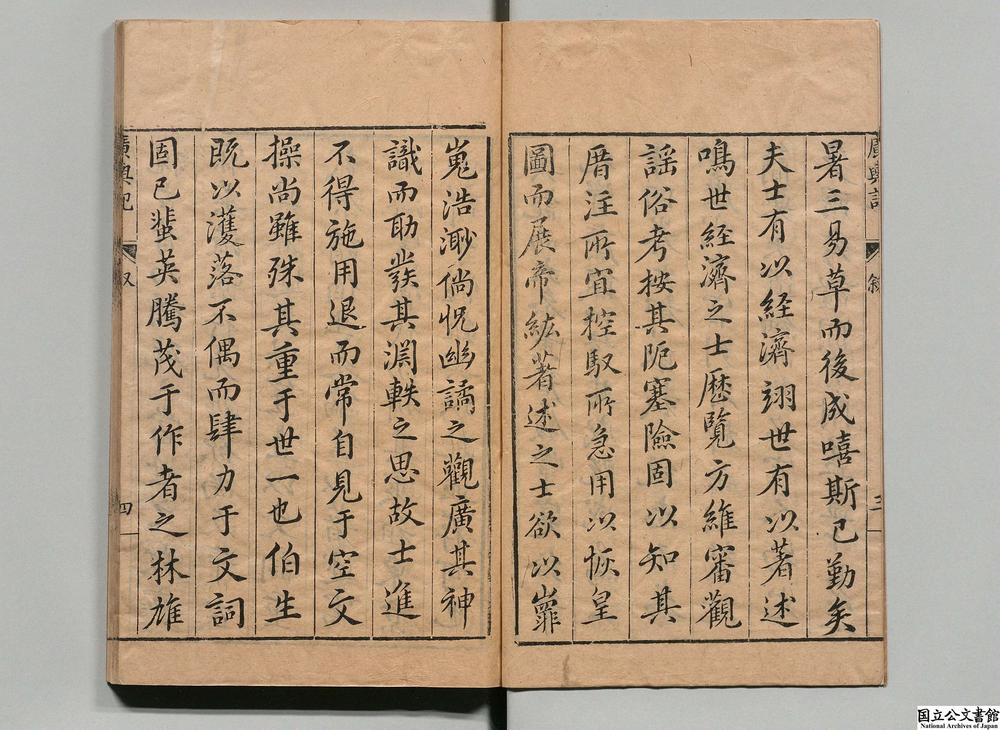 廣輿記
敘
三
暑三易草而後成嘻斯已勤矣
夫士有以経濟翊世有以著述
鳴世経濟之士歷覽方維審觀
謡俗考按其阨塞險固以知其
厝注所宜控馭所急用以恢皇
圖而展帝紘著述之士欲以巃
嵬浩渺倘怳幽譎之觀廣其神
識而助發其淵軼之思故士進
不得施用退而常自見于空文
操尚雖殊其重于世一也伯生
既以濩落不偶而肆力于文詞
固已蜚英騰茂于作者之林雄
廣輿記
叙
四
国立公文書館
National Archives of Japan